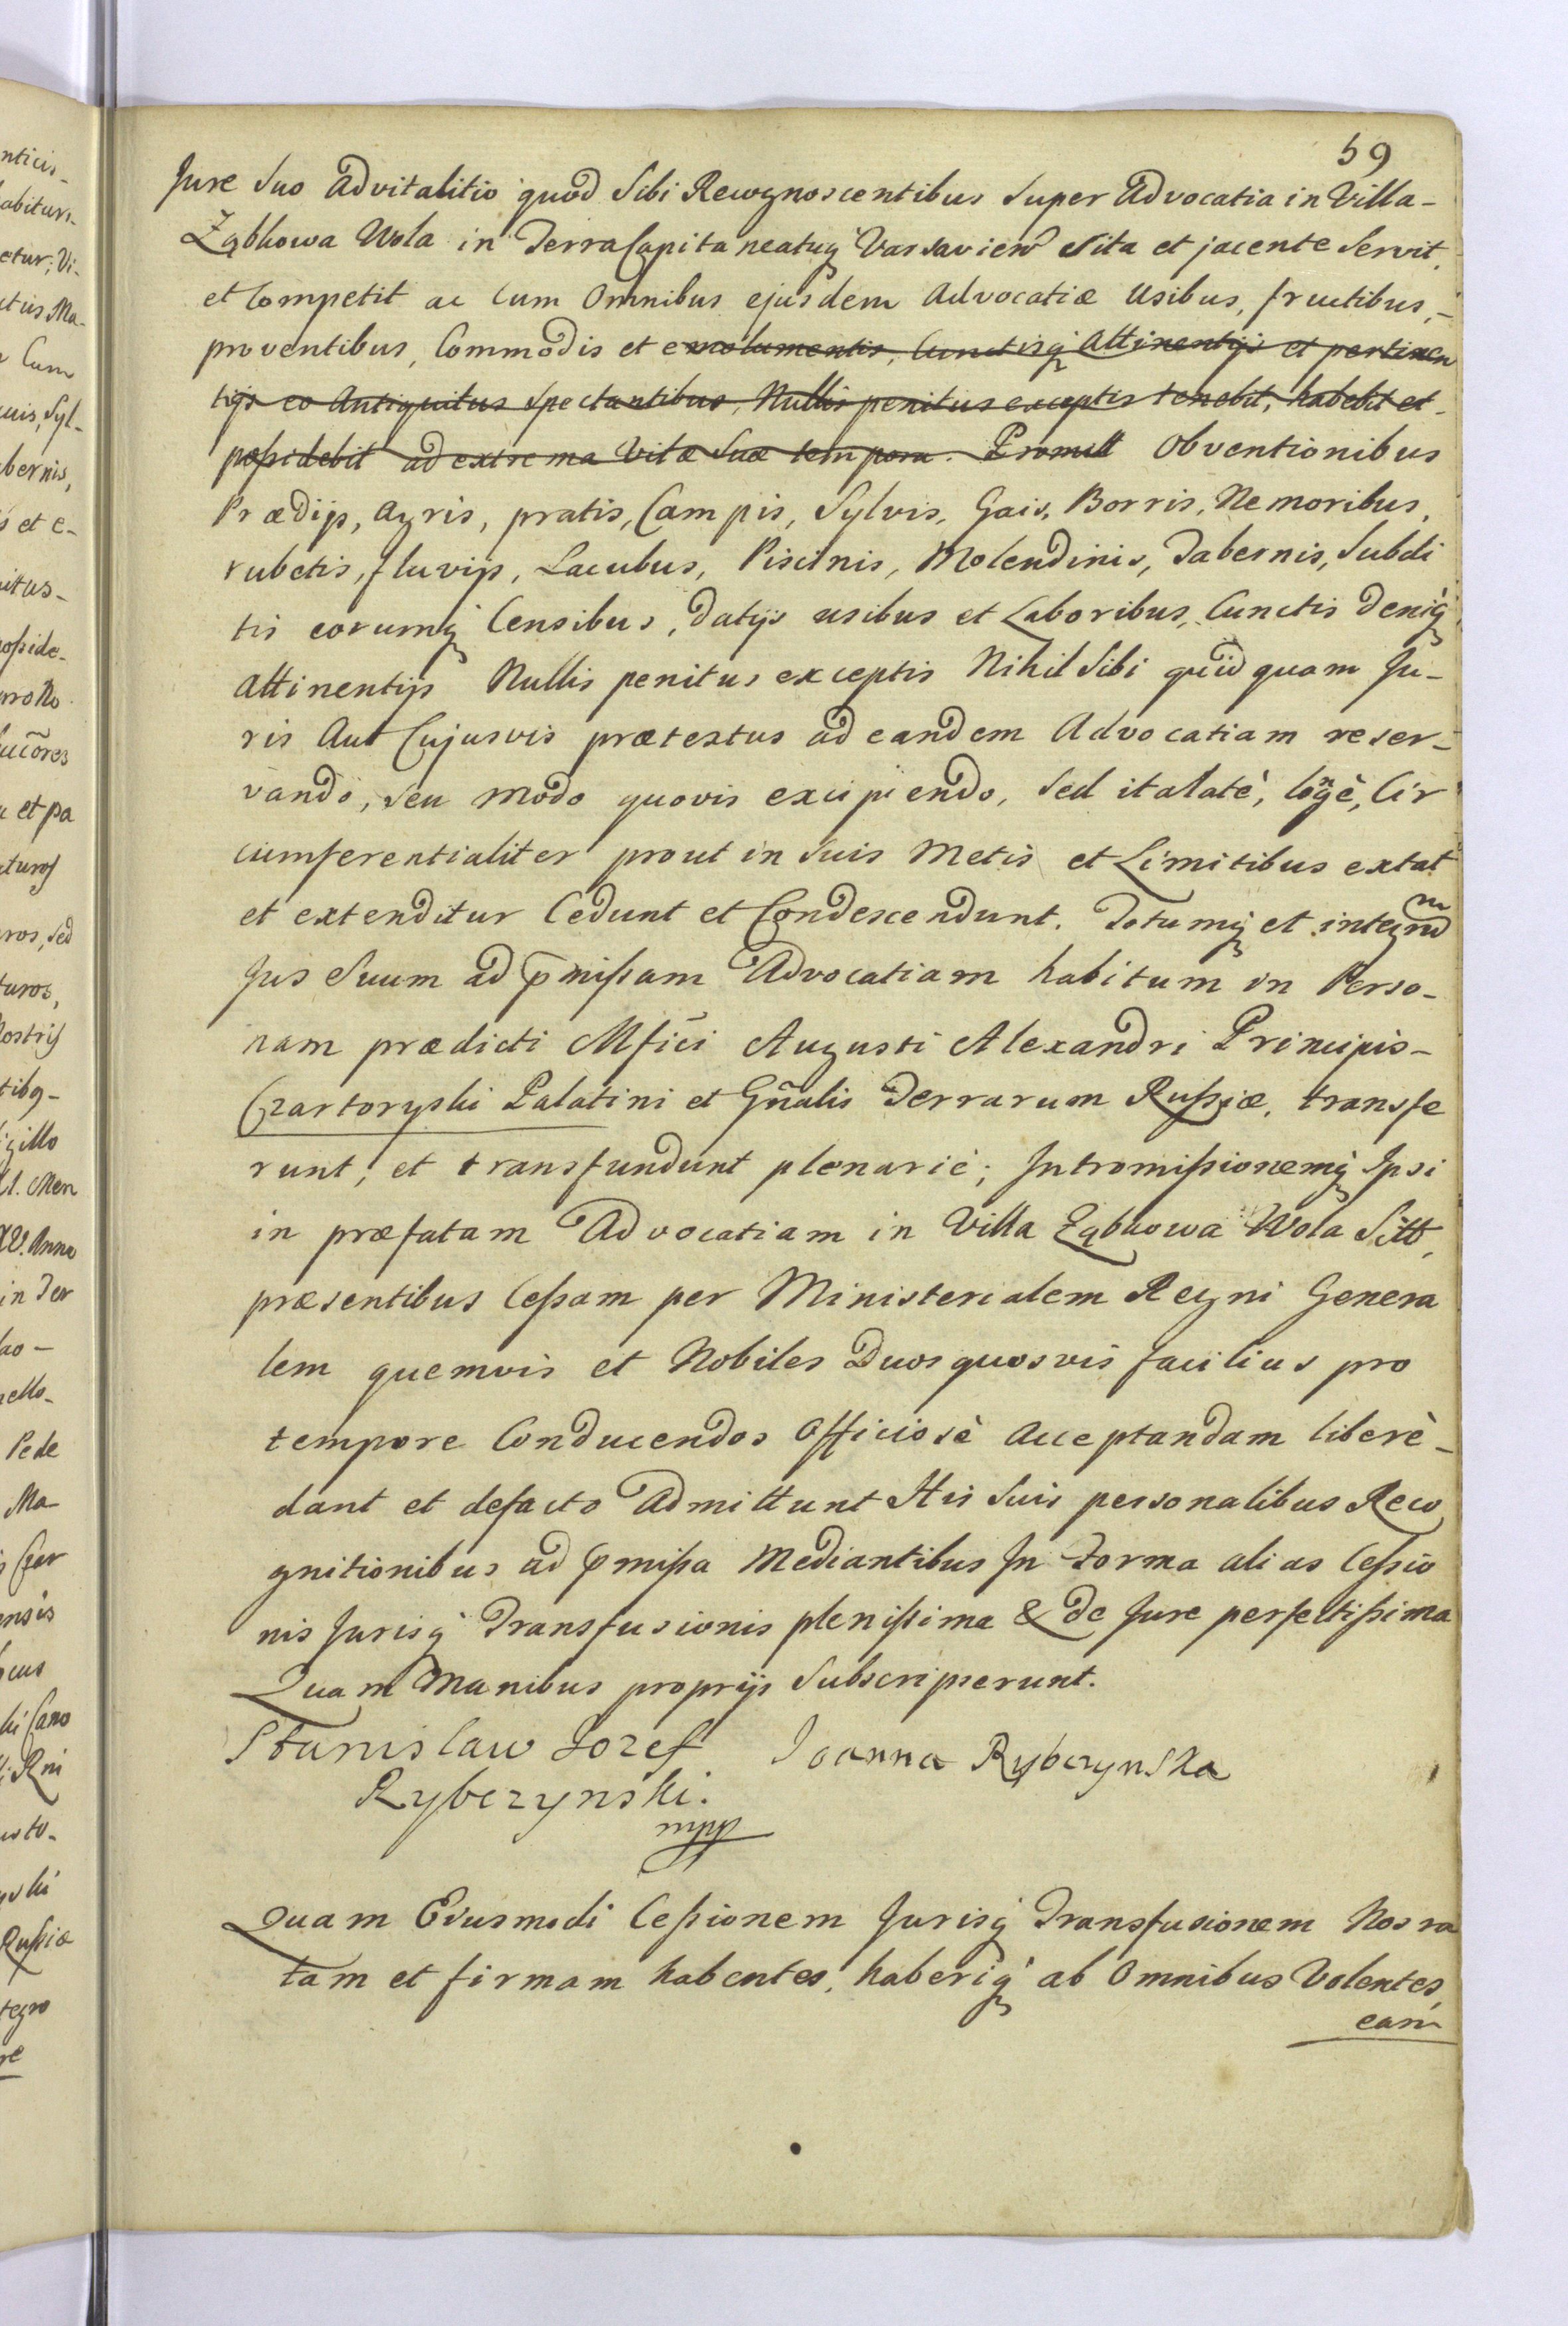 59
Jure Suo advitalitio quod Sibi Recognoscentibus Super Advocatia in Villa-
Ząbkowa Wola in Terra Capitaneatuq Varsavien Sita et jacente Servit,
et Competit ac Cum Omnibus ejusdem Advocatiæ Usibus, fructibus,-
proventibus, Commodis et emolumentis, Cunctisq attinentijs et pertinen
tijs eo Antiquitus Spectantibus, Nullis penitus exceptis tenebit, habebit et-
possidebit ad extrema Vitæ Suæ tempora. Promitt Obventionibus
Prædijs, agris, pratis, Campis, Sylvis, Gais, Borris, Nemoribus,
rubetis, fluvijs, Lacubus, Piscinis, Molendinis, Tabernis, Subdi
tis eorumq Censibus, Datijs usibus et Laboribus, Cunctis Deniq
attinentijs Nullis penitus exceptis Nihil Sibi quidquam Ju-
ris Aut Cujusvis prætextus ad eandem Advocatiam reser-
vando, seu modo quovis excipiendo, Sed ita latè, longè, Cir
cumferentialiter prout in Suis Metis et Limitibus extat
et extenditur Cedunt et Condescendunt. Totumq et integrum
Jus Suum ad p̄missam Advocatiam habitum in Perso-
nam prædicti Mfici Augusti Alexandri Principis-
Czartoryski Palatini et Gñalis Terrarum Russiæ, transfe
runt, et transfundunt plenariè; Intromissionemq Ipsi
in præfatam Advocatiam in Villa Ząbkowa Wola Sitt,
præsentibus Cessam per Ministerialem Regni Genera
lem quemvis et Nobiles Duos quosvis facilius pro
tempore Conducendos Officiosè Acceptandam liberè-
dant et defacto Admittunt His Suis personalibus Reco
gnitionibus ad p̄missa Mediantibus In Forma alias Cessio
nis Jurisq Transfusionis plenissima & de Jure perfectissima
Quam Manibus proprijs Subscripserunt.
Stanislaw Jozef Joanna Rybczynska
Rybczynski.
mpp
Quam Ejusmodi Cessionem Jurisq Transfusionem Nos ra
tam et firmam habentes, haberiq ab Omnibus Volentes,
eam